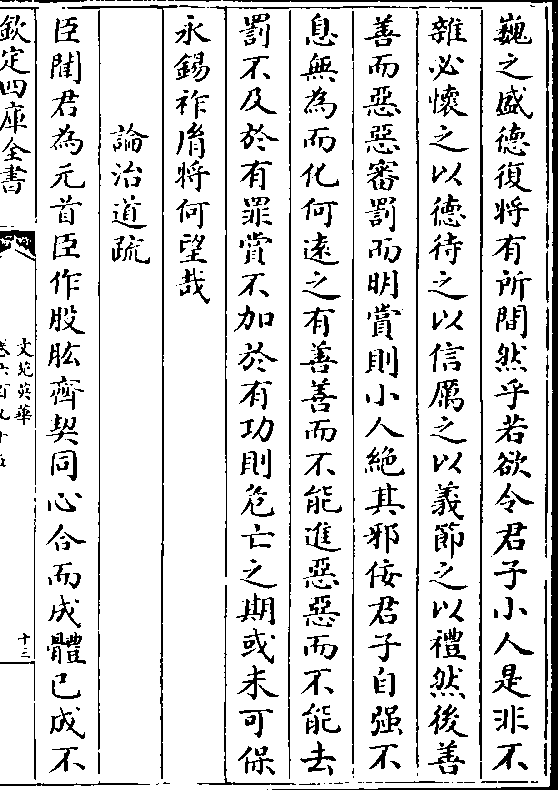 巍之盛德復将有所間然乎若欲令君子小人是非不
雜必懷之以德待之以信厲之以義節之以禮然後善
善而惡惡審罰而明賞則小人絶其邪佞君子自强不
息無為而化何遠之有善善而不能進惡惡而不能去
罰不及於有罪賞不加於有功則危亡之期或未可保
永錫祚𦙍将何望哉
論治道疏
臣聞君為元首臣作股肱齊契同心合而成體已成不
欽定四庫全書
文苑英華
十三